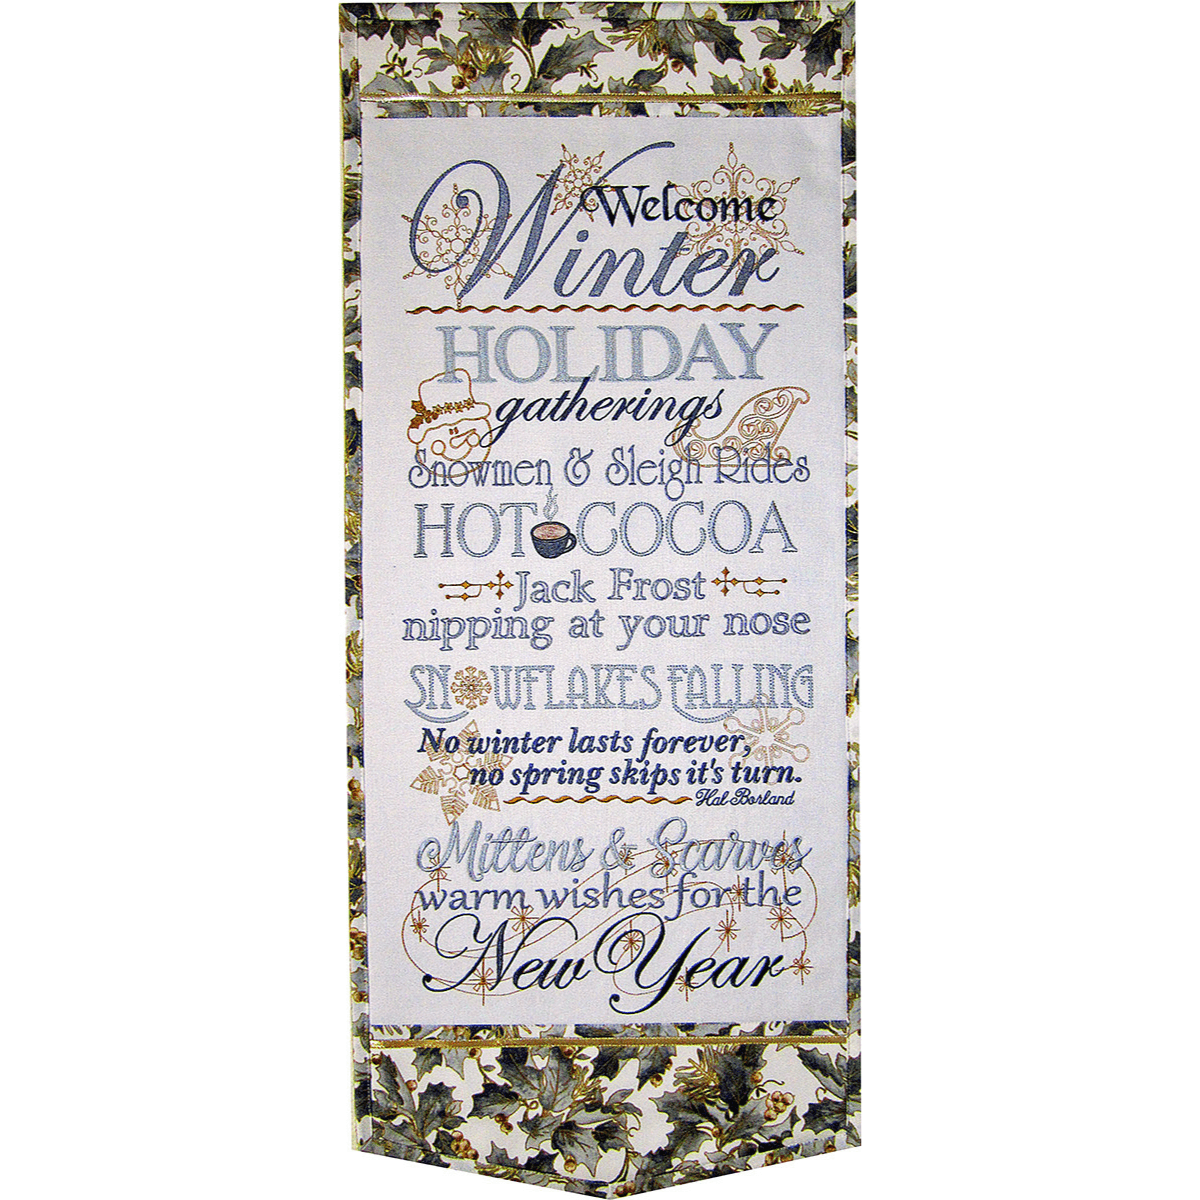 Welcome
Winter
HOLIDAY
gatherings
Snowmen & Sleigh Rides
HOT COCOA
Jack Frost
nipping at your nose
SNOWFLAKES FALLING
No winter lasts forever,
no spring skips it's turn.
Hal Borland
Mittens & Scarves
warm wishes for the
New Year